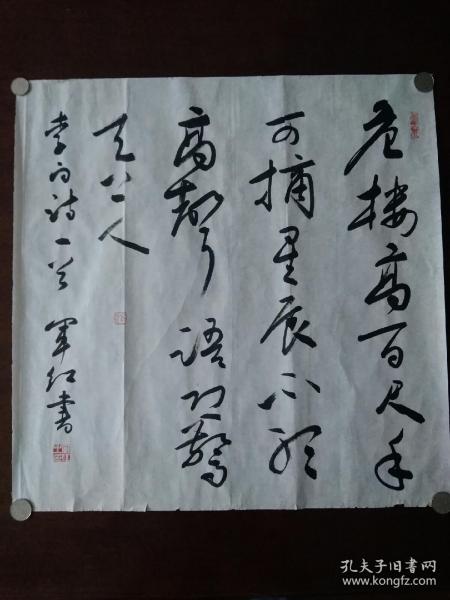 危楼高百尺手
可摘星辰不敢
高聲語恐驚
天上人
李白诗一首 军红書
孔夫子旧书网
www.kongfz.com